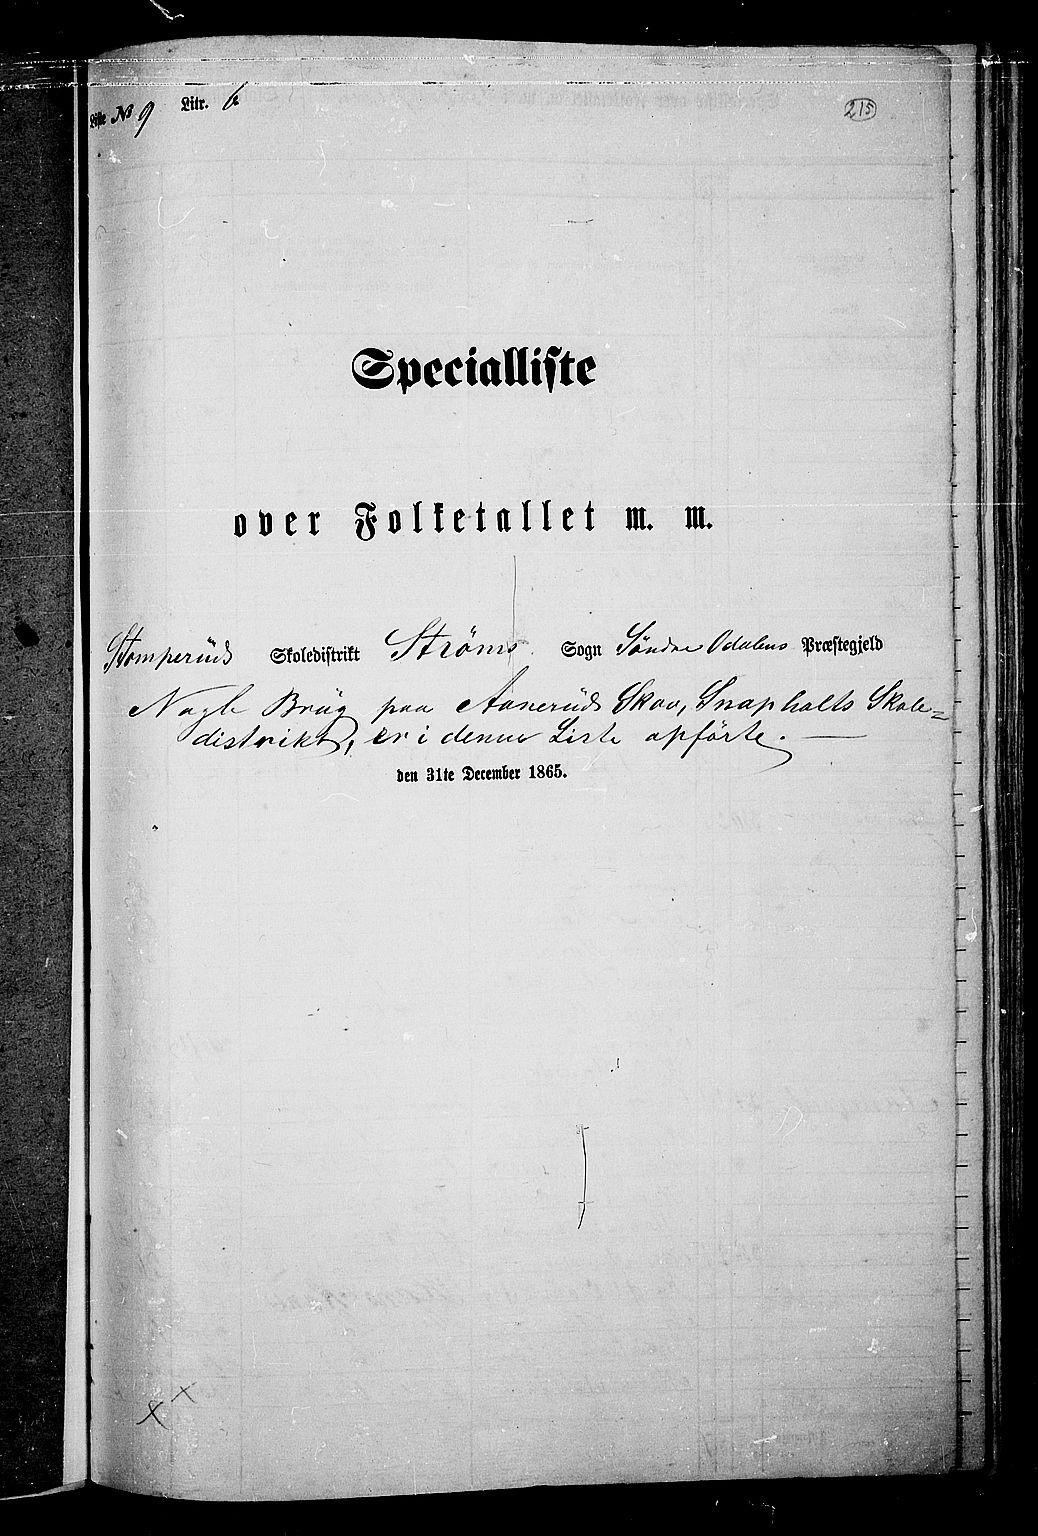 Liste No 9 Litr. b
215
Specialliste
over Folketallet m. m.
Stomperüds Skoledistrikt Ströms Sogn Söndre Odalens Præstegjeld
Nogle Brüg paa Aanerüds Skov, Snapholts Skole=
distrikt, er i denne Liste opförte. —
den 31te December 1865.